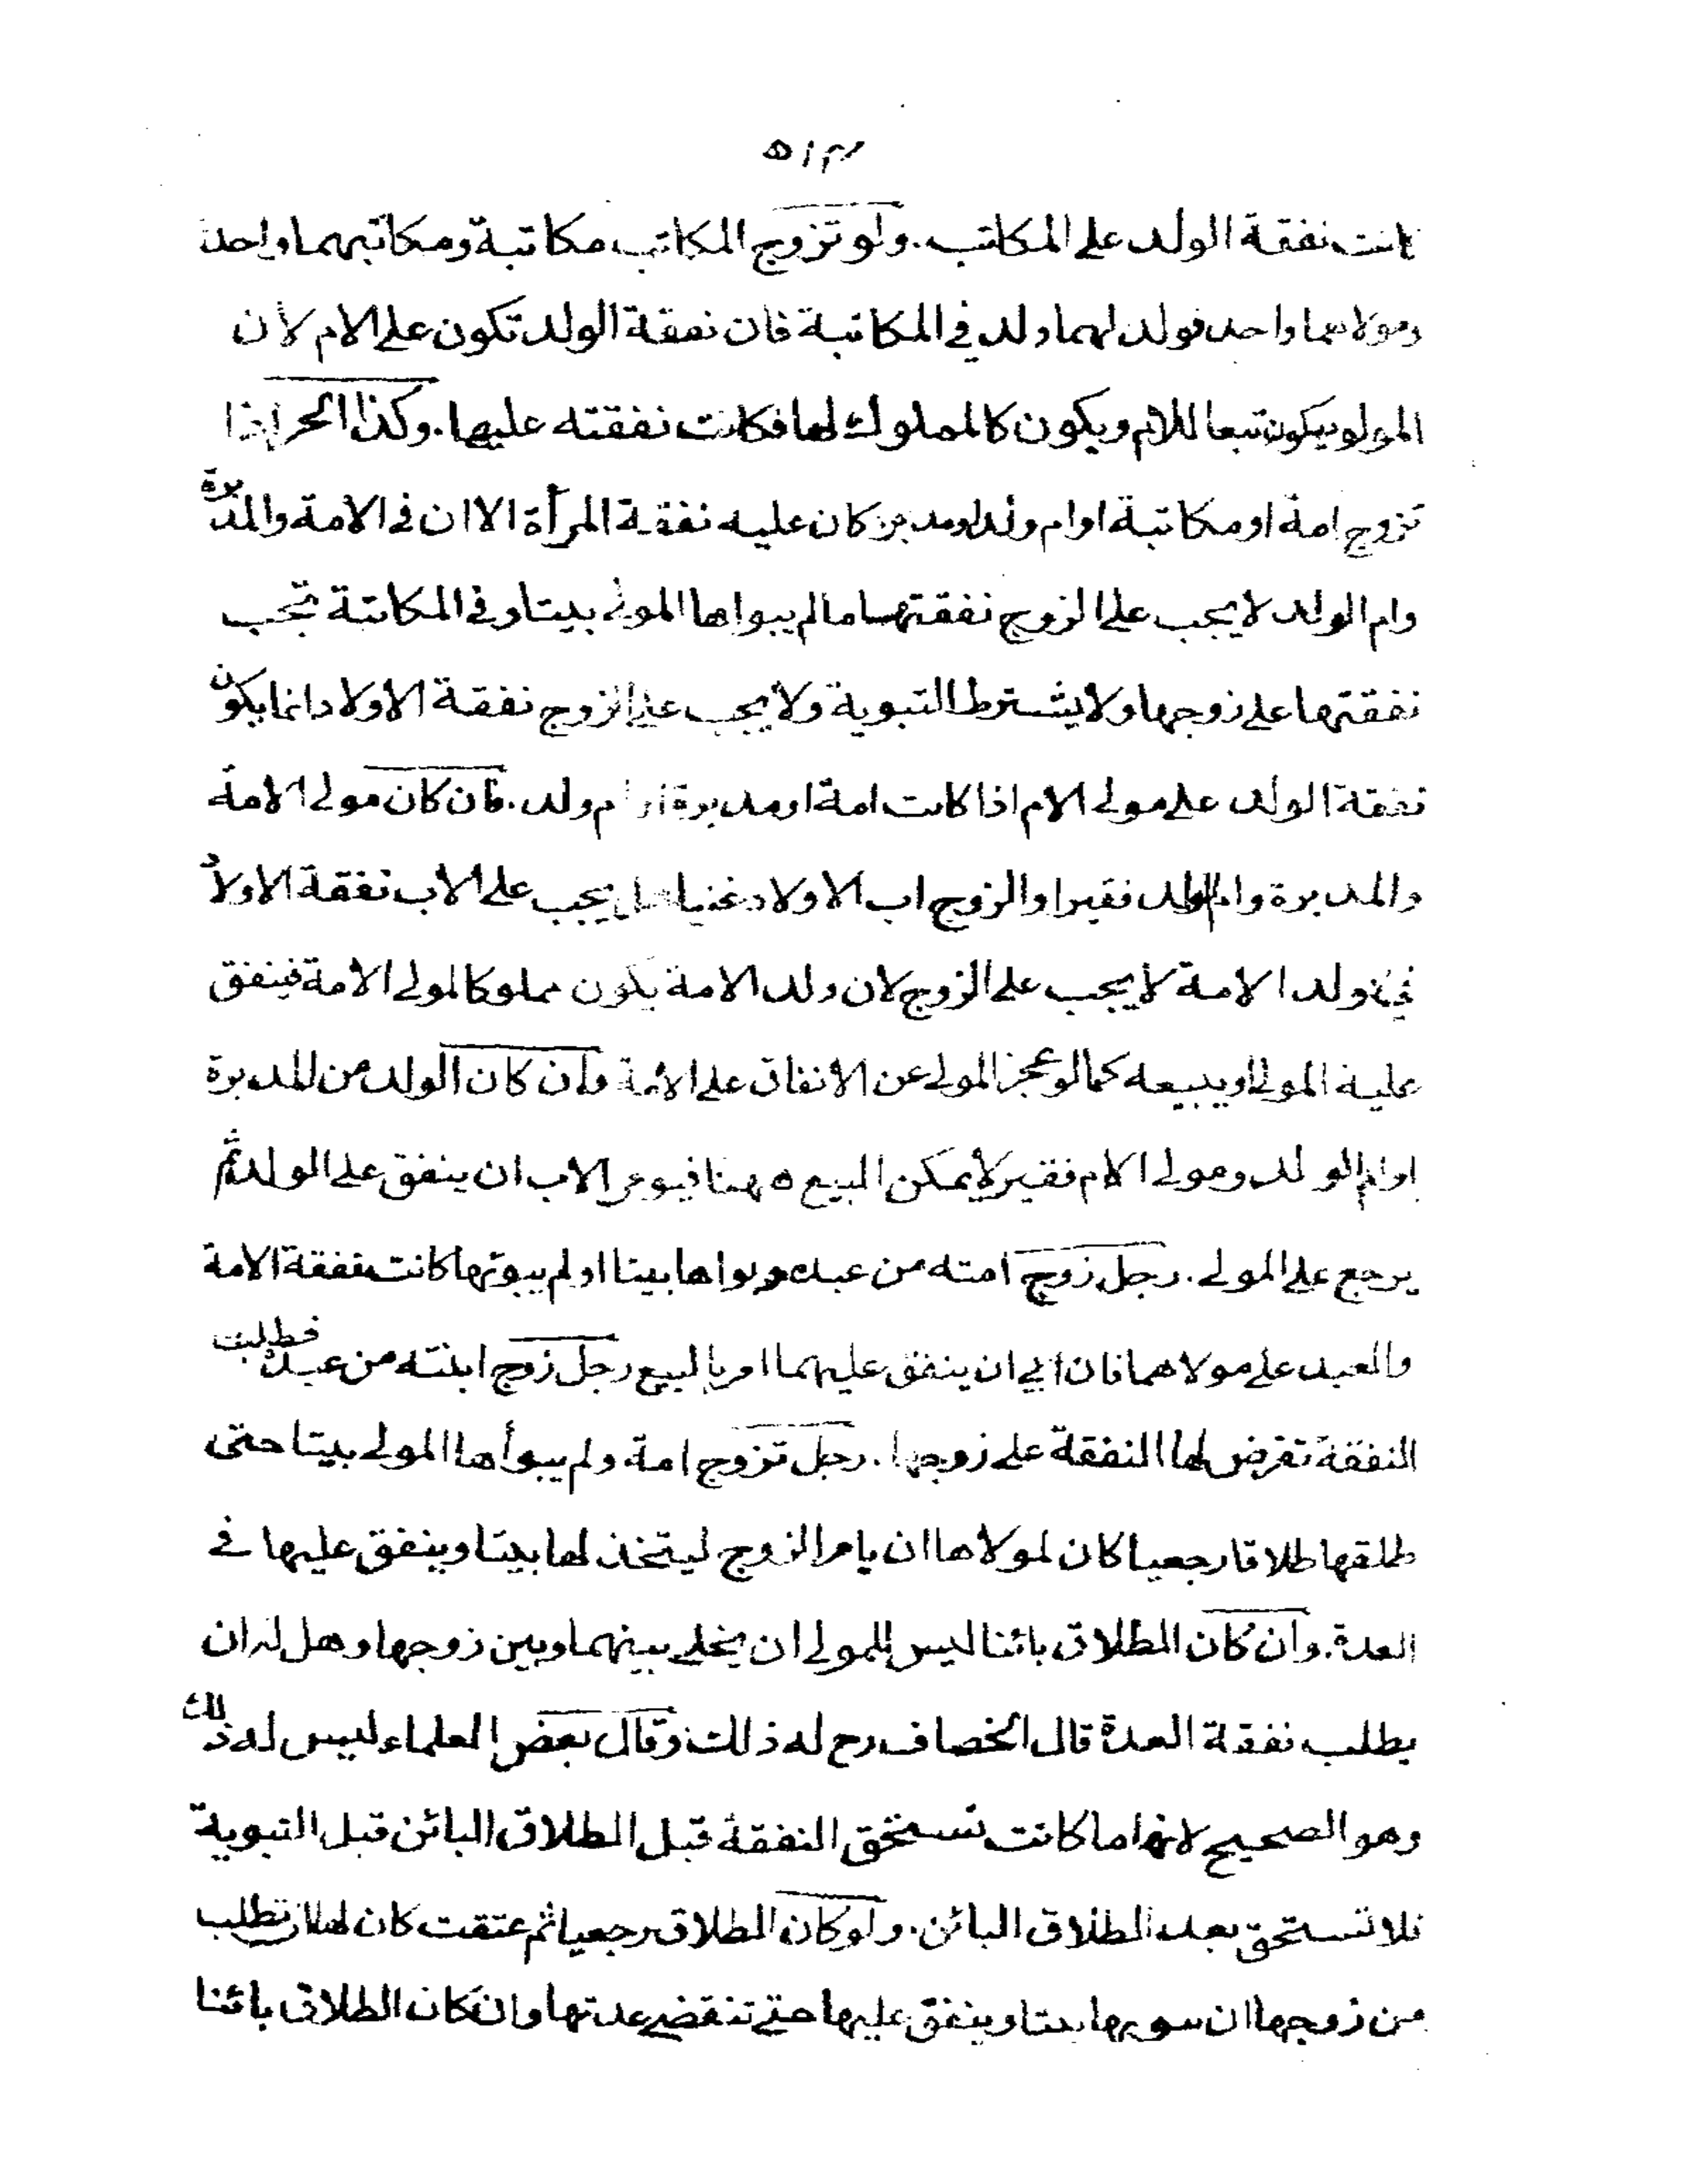 ٥١٣
كانت نفقة الولد على المكاتب. ولو تزوج المكاتب مكاتبة ومكاتبهما واحد
ومولاهما واحد فولد لهما ولد في المكاتبة فان نفقة الولد تكون على الام لان
المولود يكون تبعا للام ويكون كالمملوك لها فكانت نفقته عليها. وكذا الحر اذا
تزوج امة او مكاتبة او ام ولد او مدبرة كان عليه نفقة المرأة الا ان في الامة والمدبرة
وام الولد لا يجب على الزوج نفقتهما ما لم يبواها المولى بيتا وفي المكاتبة تجب
نفقتها على زوجها ولا يشترط التبوية ولا يجب على الزوج نفقة الاولاد انما يكون
نفقة الولد على مولى الام اذا كانت امة او مدبرة او ام ولد. فان كان مولى الامة
والمدبرة وام الولد فقيرا والزوج اب الاولاد غنيا هل يجب على الاب نفقة الاولاد
ففي ولد الامة لا يجب على الزوج لان ولد الامة يكون مملوكا لمولى الامة فينفق
عليه المولى او يبيعه كما لو عجز المولى عن الانفاق على الامة وان كان الولد من المدبرة
او ام الولد ومولى الام فقير لا يمكن البيع ههنا فيؤمر الاب ان ينفق على الولد ثم
يرجع على المولى. رجل زوج امته من عبده وبواها بيتا او لم يبوئها كانت نفقة الامة
والعبد على مولاهما فان ابى ان ينفق عليهما امر بالبيع رجل زوج ابنته من عبده فطلبت
النفقة تفرض لها النفقة على زوجها. رجل تزوج امة ولم يبوأها المولى بيتا حتى
طلقها طلاقا رجعيا كان لمولاها ان يامر الزوج ليتخذ لها بيتا وينفق عليها في
العدة. وان كان الطلاق بائنا ليس للمولى ان يخلي بينهما وبين زوجها وهل له ان
يطلب نفقة العدة قال الخصاف رح له ذلك وقال بعض العلماء ليس له ذلك
وهو الصحيح لانها ما كانت تستحق النفقة قبل الطلاق البائن قبل التبوية
فلا تستحق بعد الطلاق البائن. ولو كان الطلاق رجعيا ثم عتقت كان لها ان تطلب
من زوجها ان يبويها بيتا وينفق عليها حتى تنقضي عدتها وان كان الطلاق بائنا